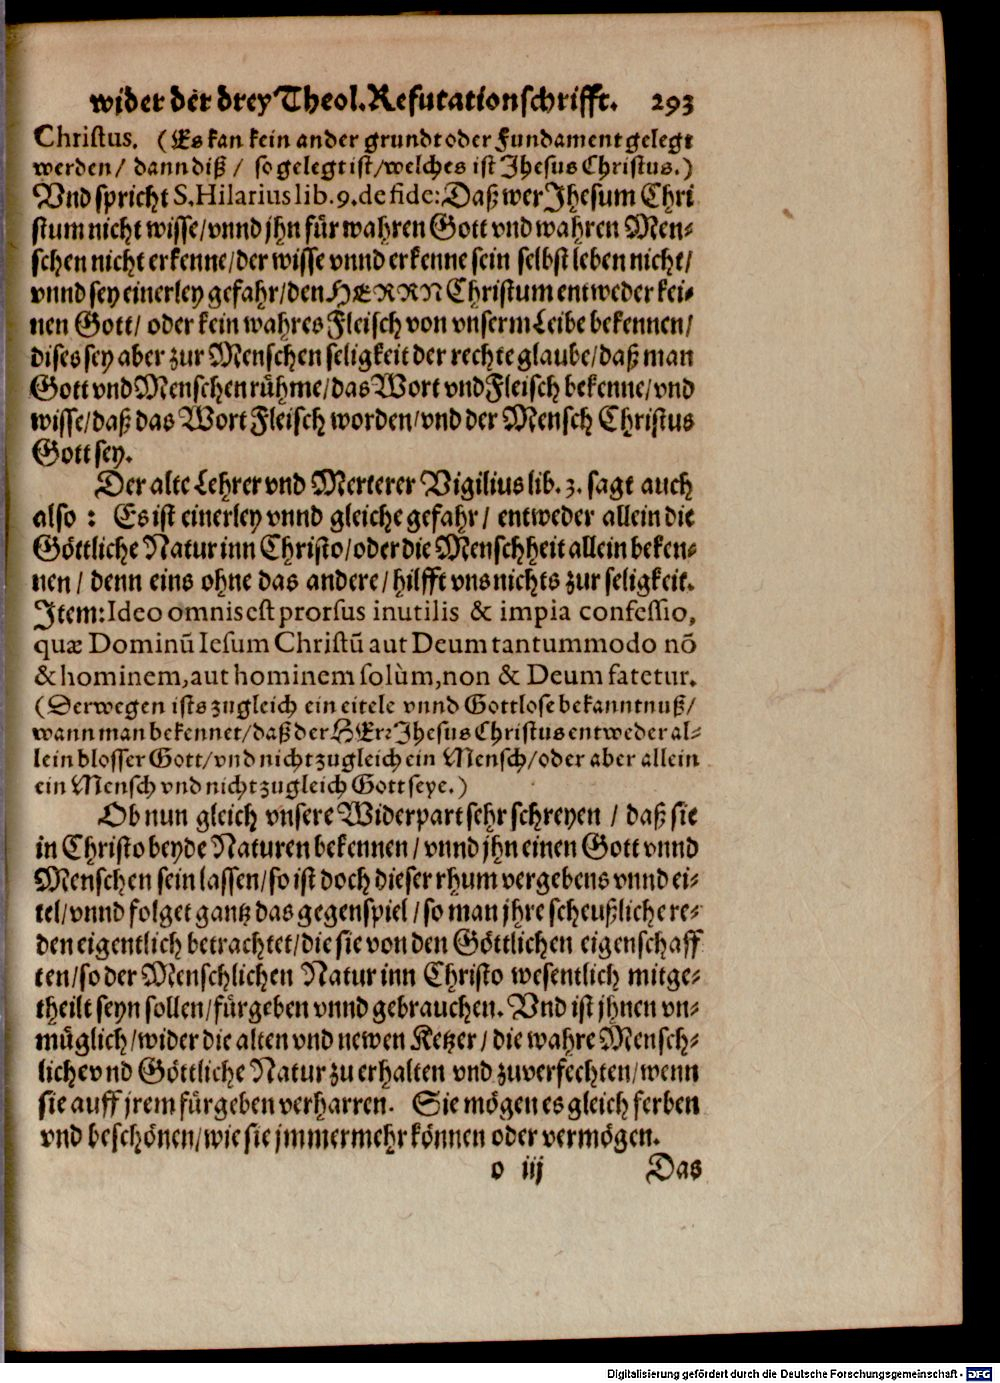 wider der drey Theol. Refutationschrifft. 293
Christus. (Es kan kein ander grundt oder Fundament gelegt
werden/ dann diß/ so gelegt ist/ welches ist Jhesus Christus.)
Vnd spricht S. Hilarius lib. 9. de fide: Daß wer Jhesum Chri
stum nicht wisse/ vnnd jhn für wahren Gott vnd wahren Men-
schen nicht erkenne/ der wisse vnnd erkenne sein selbst leben nicht/
vnnd sey einerley gefahr/ den HERRN Christum entweder kei-
nen Gott/ oder kein wahres Fleisch von vnserm Leibe bekennen/
dises sey aber zur Menschen seligkeit der rechte glaube/ daß man
Gott vnd Menschen rühme/ das Wort vnd Fleisch bekenne/ vnd
wisse/ daß das Wort Fleisch worden/ vnd der Mensch Christus
Gott sey.
Der alte Lehrer vnd Merterer Vigilius lib. 3. sagt auch
also: Es ist einerley vnnd gleiche gefahr/ entweder allein die
Göttliche Natur inn Christo/ oder die Menschheit allein beken-
nen/ denn eins ohne das andere/ hilfft vns nichts zur seligkeit.
Jtem: Ideo omnis est prorsus inutilis & impia confessio,
quæ Dominū Iesum Christū aut Deum tantummodo nō
& hominem, aut hominem solùm, non & Deum fatetur.
(Derwegen ists zugleich ein eitele vnnd Gottlose bekanntnuß/
wann man bekennet/ daß der HErꝛ Jhesus Christus entweder al-
lein blosser Gott/ vnd nicht zugleich ein Mensch/ oder aber allein
ein Mensch vnd nicht zugleich Gott seye.)
Ob nun gleich vnsere Widerpart sehr schreyen/ daß sie
in Christo beyde Naturen bekennen/ vnnd jhn einen Gott vnnd
Menschen sein lassen/ so ist doch dieser rhum vergebens vnnd ei-
tel/ vnnd folget gantz das gegenspiel/ so man jhre scheußliche re-
den eigentlich betrachtet/ die sie von den Göttlichen eigenschaff
ten/ so der Menschlichen Natur inn Christo wesentlich mitge-
theilt seyn sollen/ fürgeben vnnd gebrauchen. Vnd ist jhnen vn-
müglich/ wider die alten vnd newen Ketzer/ die wahre Mensch-
liche vnd Göttliche Natur zu erhalten vnd zuverfechten/ wenn
sie auff jrem fürgeben verharren. Sie mögen es gleich ferben
vnd beschönen/ wie sie jmmermehr können oder vermögen.
o iij Das
Digitalisierung gefördert durch die Deutsche Forschungsgemeinschaft - DFG